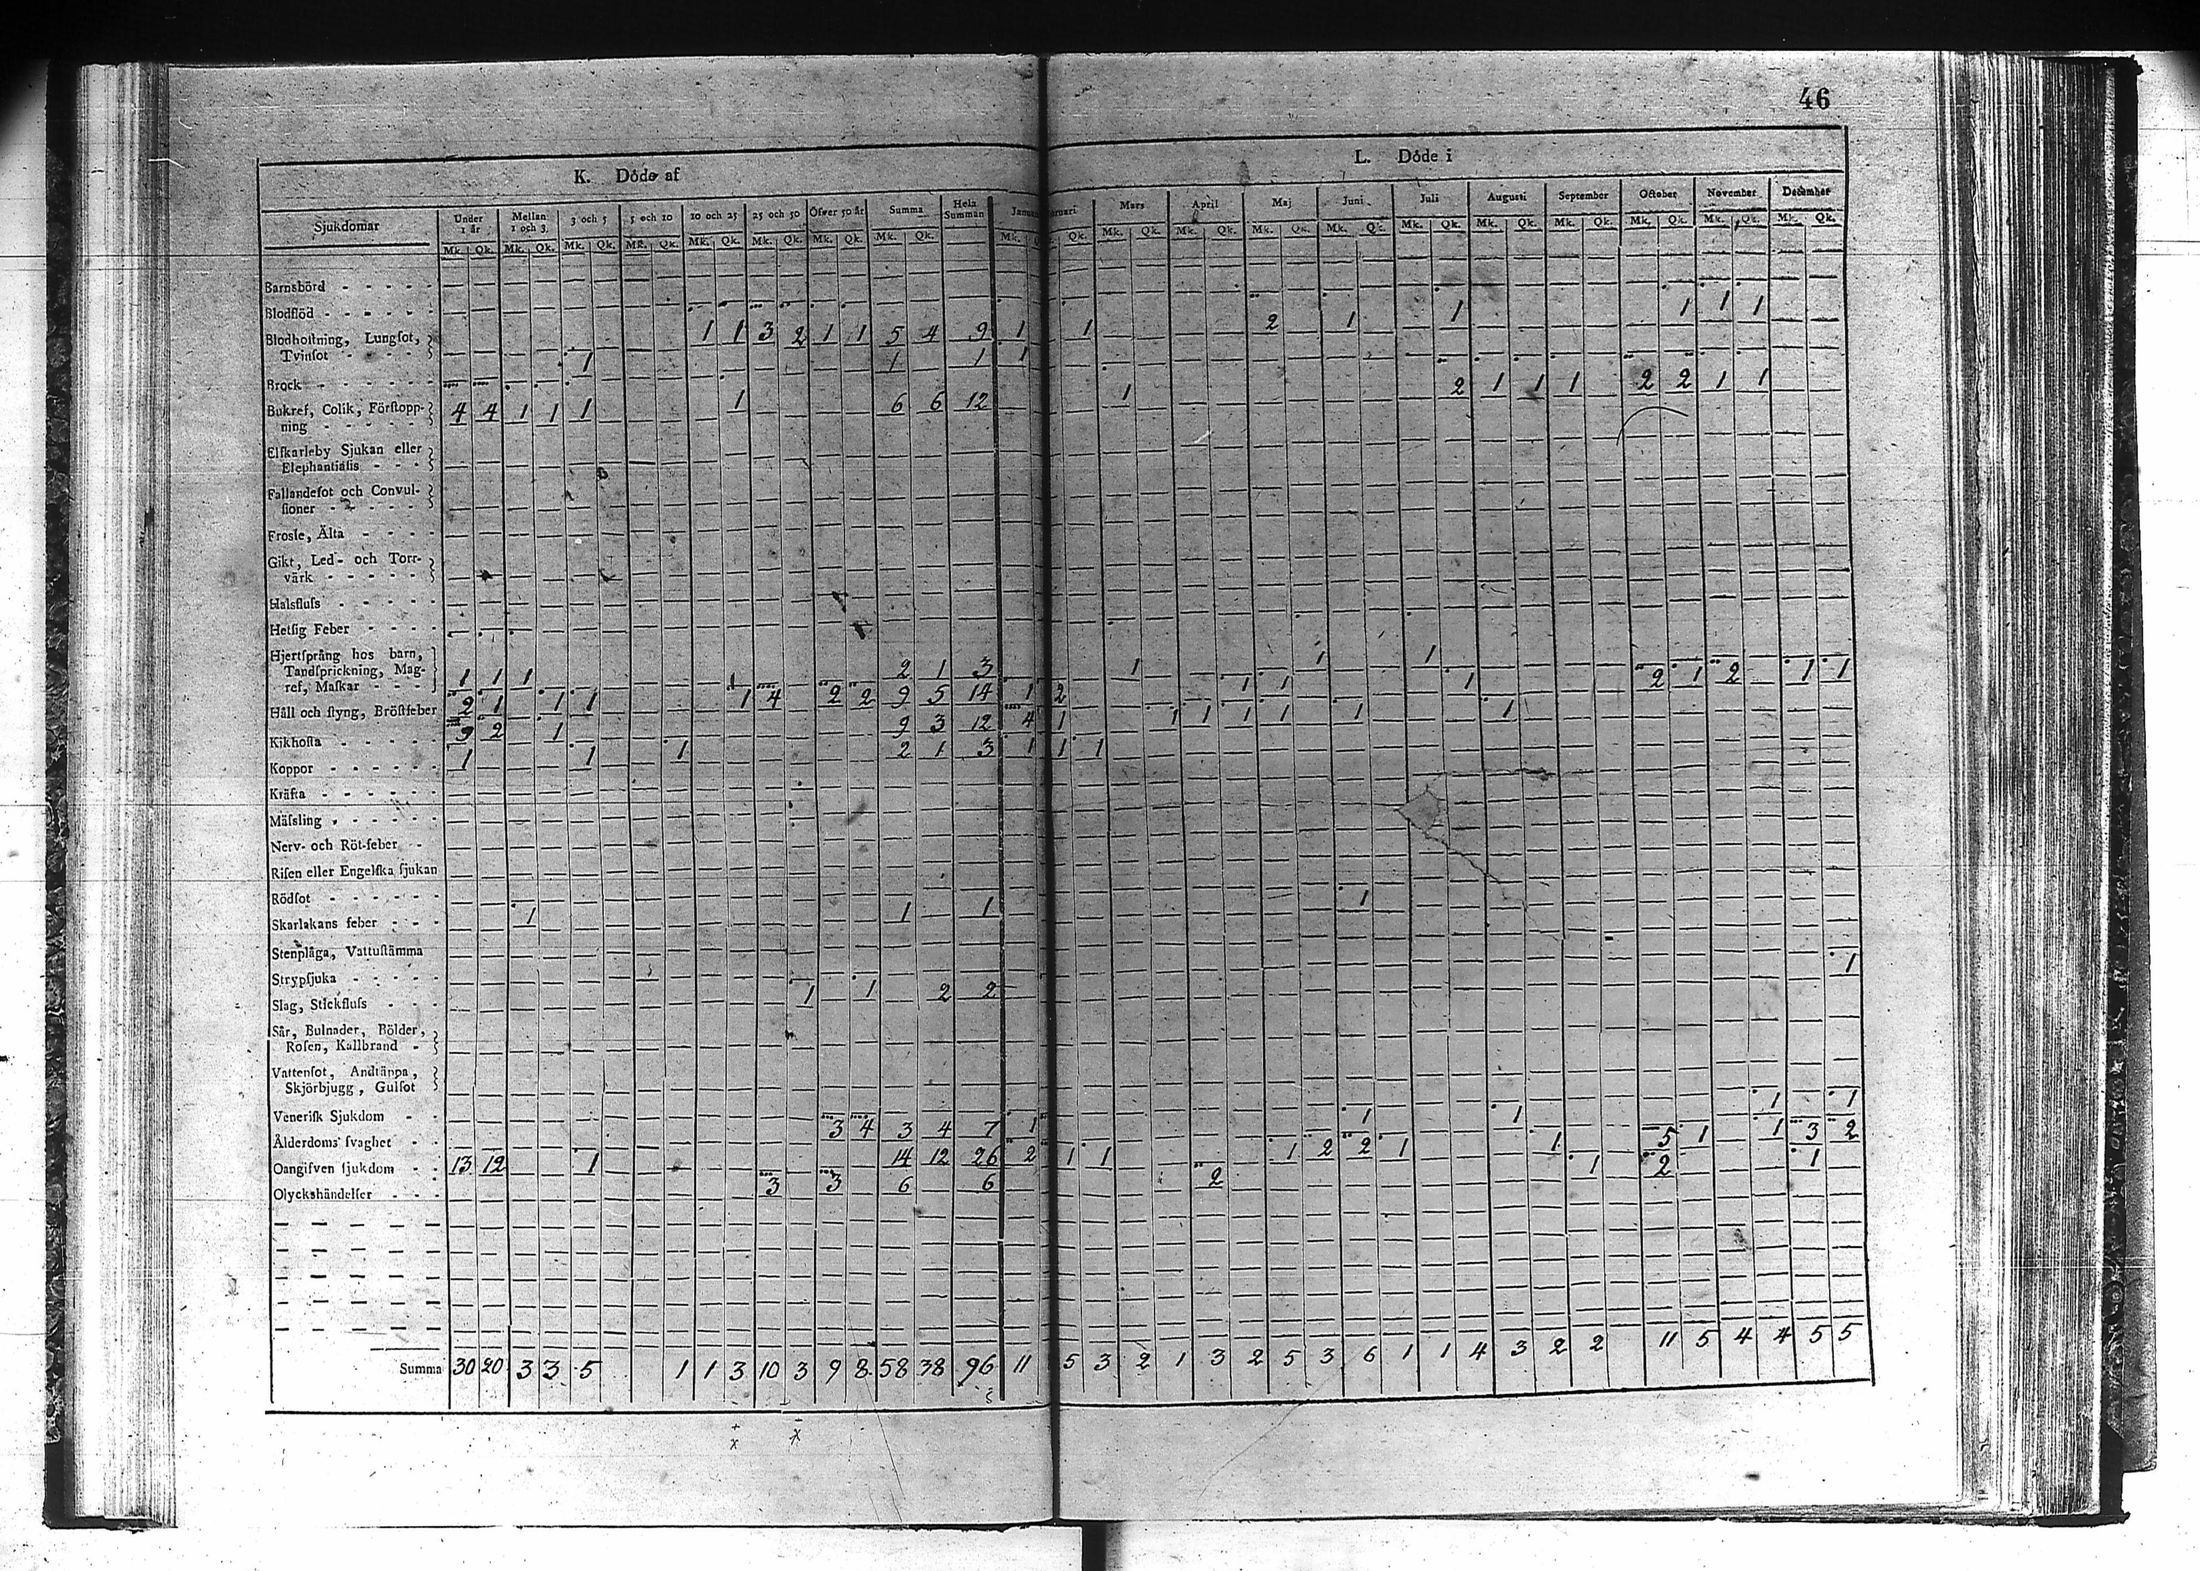 46
K. Döde af
L. Döde i
Sjukdomar Under 1 år Mellan 1 och 3. 3 och 5 5 och 10 10 och 25 25 och 50 Öfver 50 år Summa Hela Summan Mars April Maj Juni Juli Augusti September October November December
Mk. Qk. Mk. Qk. Mk. Qk. Mk. Qk. Mk. Qk. Mk. Qk. Mk. Qk. Mk. Qk. Mk. Qk. Mk. Qk. Mk. Qk. Mk. Qk. Mk. Qk. Mk. Qk. Mk. Qk. Mk. Qk. Mk. Qk. Mk. Qk. Mk. Qk.
Barnsbörd
Blodflöd
Blodhostning, Lungsot,
Tvinsot 1 1 3 2 1 1 5 4 9 1 1 2 1 1 1 1 1
Bråck 1 1 1 1
Bukref, Colik, Förstopp-
ning 4 4 1 1 1 1 6 6 12 1 2 1 1 1 2 2 1 1
Elfkarleby Sjukan eller
Elephantiasis
Fallandesot och Convul-
sioner
Frossa, Älta
Gikt, Led- och Torr-
värk
Halsfluss
Hetsig Feber
Hjertsprång hos barn,
Tandsprickning, Mag-
ref, Maskar 1 1 1 2 1 3 1 1 1
Håll och styng, Bröstfeber 2 1 1 1 1 4 2 2 9 5 14 1 2 1 1 1 2 1 2 1 1
Kikhosta 9 2 1 9 3 12 4 1 1 1 1 1 1 1
Koppor 1 1 1 2 1 3 1 1 1
Kräfta
Mässling
Nerv- och Röt-feber
Risen eller Engelska sjukan
Rödsot
Skarlakans feber 1 1 1 1
Stenplåga, Vattustämma
Strypsjuka
Slag, Stickfluss 1 1 2 2 1
Sår, Bulnader, Bölder,
Rosen, Kallbrand
Vattensot, Andtäppa,
Skjörbjugg, Gulsot
Venerisk Sjukdom
Ålderdoms svaghet 3 4 3 4 7 1 1 1 1 1
Oangifven sjukdom 13 12 1 14 12 26 2 1 1 1 2 2 1 1 5 1 1 3 2
Olyckshändelser 3 3 6 6 2 1 2 1
Summa 30 20 3 3 5 1 1 3 10 3 9 8 58 38 96 11 5 3 2 1 3 2 5 3 6 1 1 4 3 2 2 11 5 4 4 5 5